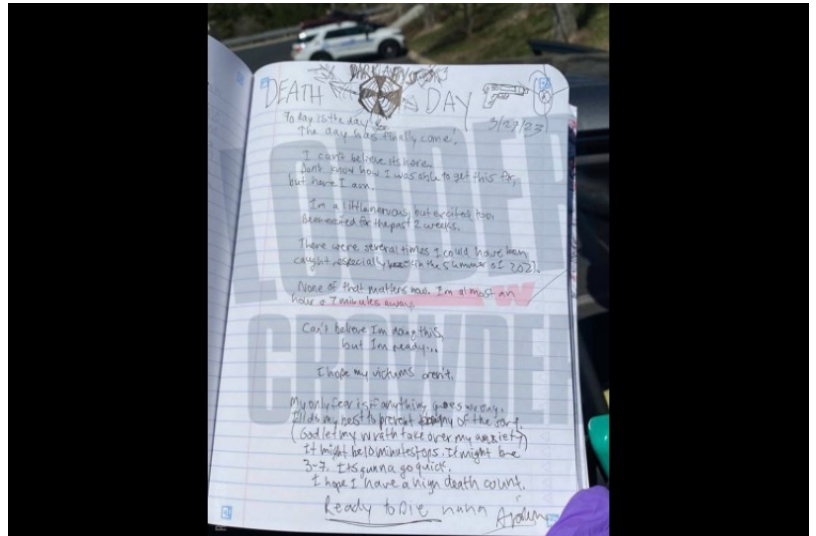 DARK ABYSS
DEATH DAY
3/27/23
Today is the day
The day has finally come!
I can't believe its here.
Dont know how I was able to get this far,
but here I am.
I'm a little nervous, but excited too.
Been excited for the past 2 weeks.
There were several times I could have been
caught especially in the summer of 2021.
None of that matters now. I'm almost an
hour & 7 minutes away.
Can't believe I'm doing this,
but I'm ready...
I hope my victims aren't.
My only fear is if anything goes wrong.
I'll do my best to prevent any of the sort.
(God let my wrath take over my anxiety)
It might be 10 minutes tops. It might be
3-7. Its gunna go quick.
I hope I have a high death count.
Ready to Die haha Aiden
LOUDER
w
CROWDER